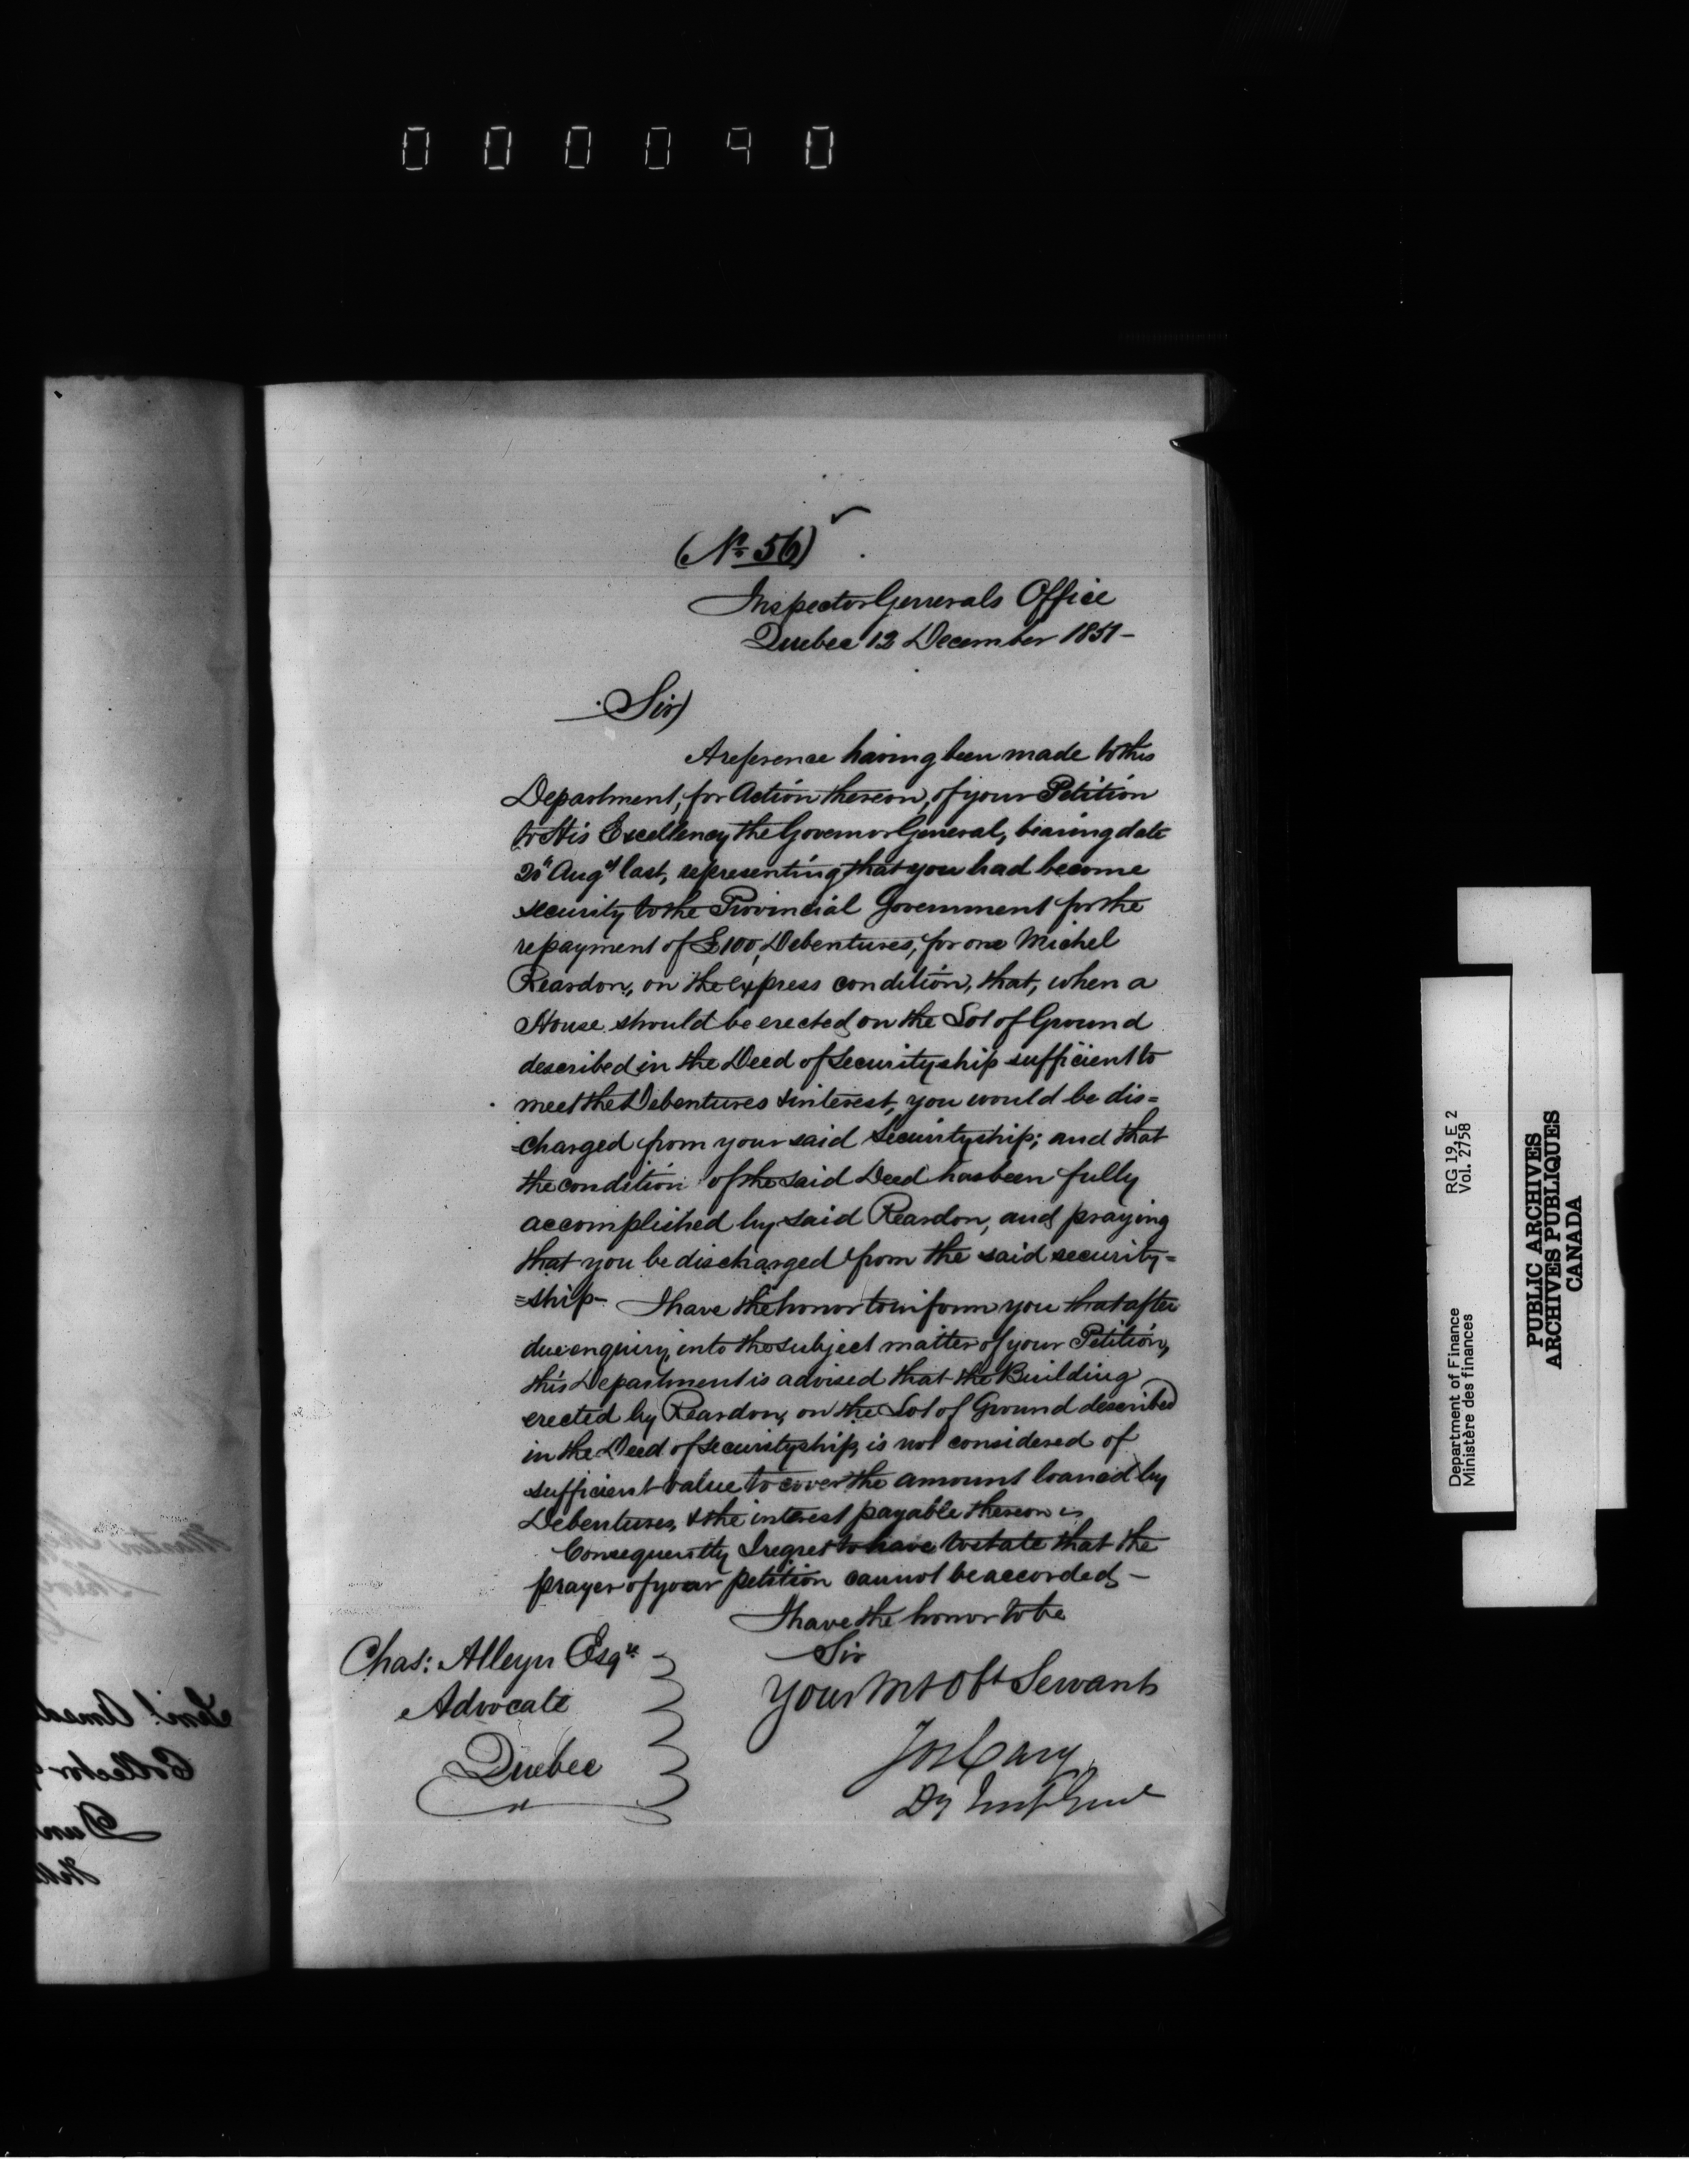 000090
(No 56)
Inspector Generals Office
Quebec 12 December 1851-
Sir)
A reference having been made to this
Department, for Action thereon, of your Petition
to His Excellency the Governor General, bearing date
20th Augst last, representing that you had become
security to the Provincial Government for the
repayment of £100, Debentures, for one Michel
Reardon, on the express condition, that, when a
House should be erected on the Lot of Ground
described in the Deed of Securityship sufficient to
meet the Debentures & interest, you would be dis=
=charged from your said Securityship; and that
the condition of the said Deed has been fully
accomplished by said Reardon, and praying
that you be discharged from the said security=
=ship- I have the honor to inform you that after
due enquiry into the subject matter of your Petition,
this Department is advised that the Building
erected by Reardon, on the Lot of Ground described
in the Deed of Securityship, is not considered of
sufficient value to cover the amount loaned by
Debentures, & the interest payable thereon
Consequently I regret to have to state that the
prayer of your petition cannot be accorded-
I have the honor to be
Sir
Your Mt Obt Servant
Jos Cary
Dy Insp Genl
Chas: Alleyn Esqre
Advocate
Quebec
Department of Finance
Ministère des finances
RG 19, E 2
Vol. 2758
PUBLIC ARCHIVES
ARCHIVES PUBLIQUES
CANADA